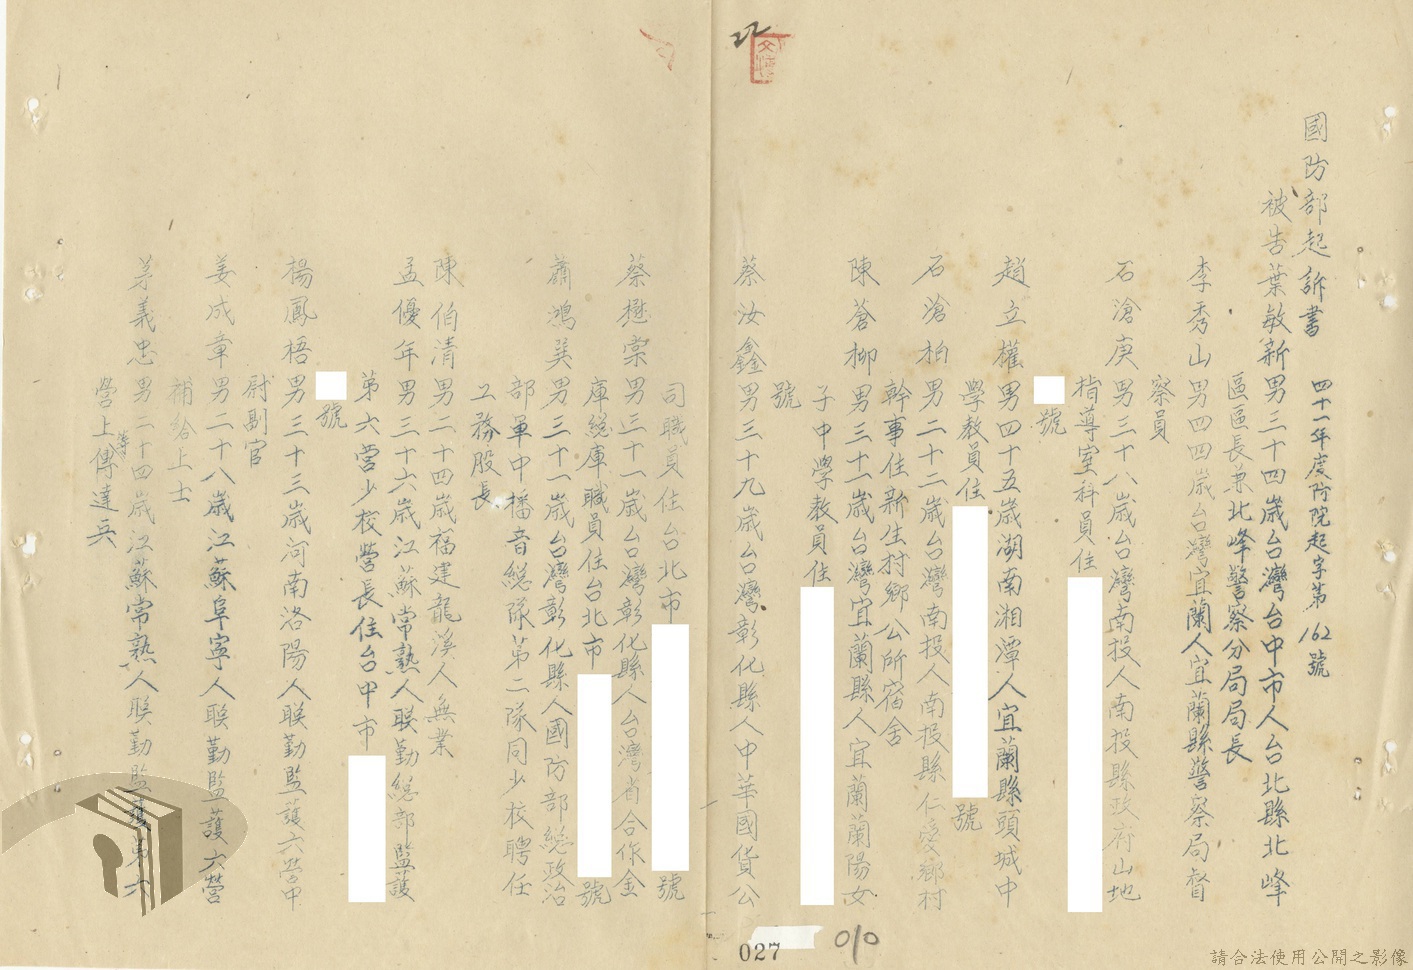 國防部起訴書 四十一年度防院起字第162號
被告葉敏新男三十四歲台灣台中市人台北縣北峰
區區長兼北峰警察分局局長
李秀山男四四歲台灣宜蘭人宜蘭縣警察局督
察員
石滄庚男三十八歲台灣南投人南投縣政府山地
指導室科員住
號
趙立權男四十五歲湖南湘潭人宜蘭縣頭城中
學教員住 號
石滄柏男二十二歲台灣南投人南投縣仁愛鄉村
幹事住新生村鄉公所宿舍
陳蒼柳男三十一歲台灣宜蘭縣人宜蘭蘭陽女
子中學教員住
號
蔡汝鑫男三十九歲台灣彰化縣人中華國貨公
司職員住台北市 號
蔡懋棠男三十一歲台灣彰化縣人台灣省合作金
庫總庫職員住台北市 號
蕭鴻巽男三十一歲台灣彰化縣人國防部總政治
部軍中播音總隊第二隊同少校聘任
工務股長
陳伯清男二十四歲福建龍溪人無業
孟優年男三十六歲江蘇常熟人聯勤總部監護
第六營少校營長住台中市
號
楊鳳梧男三十三歲河南洛陽人聯勤監護六營中
尉副官
姜成章男二十八歲江蘇阜寧人聯勤監護六營
補給上士
茅義忠男二十四歲江蘇常熟人聯勤監護第六
營上等傳達兵
22
027
010
請合法使用公開之影像